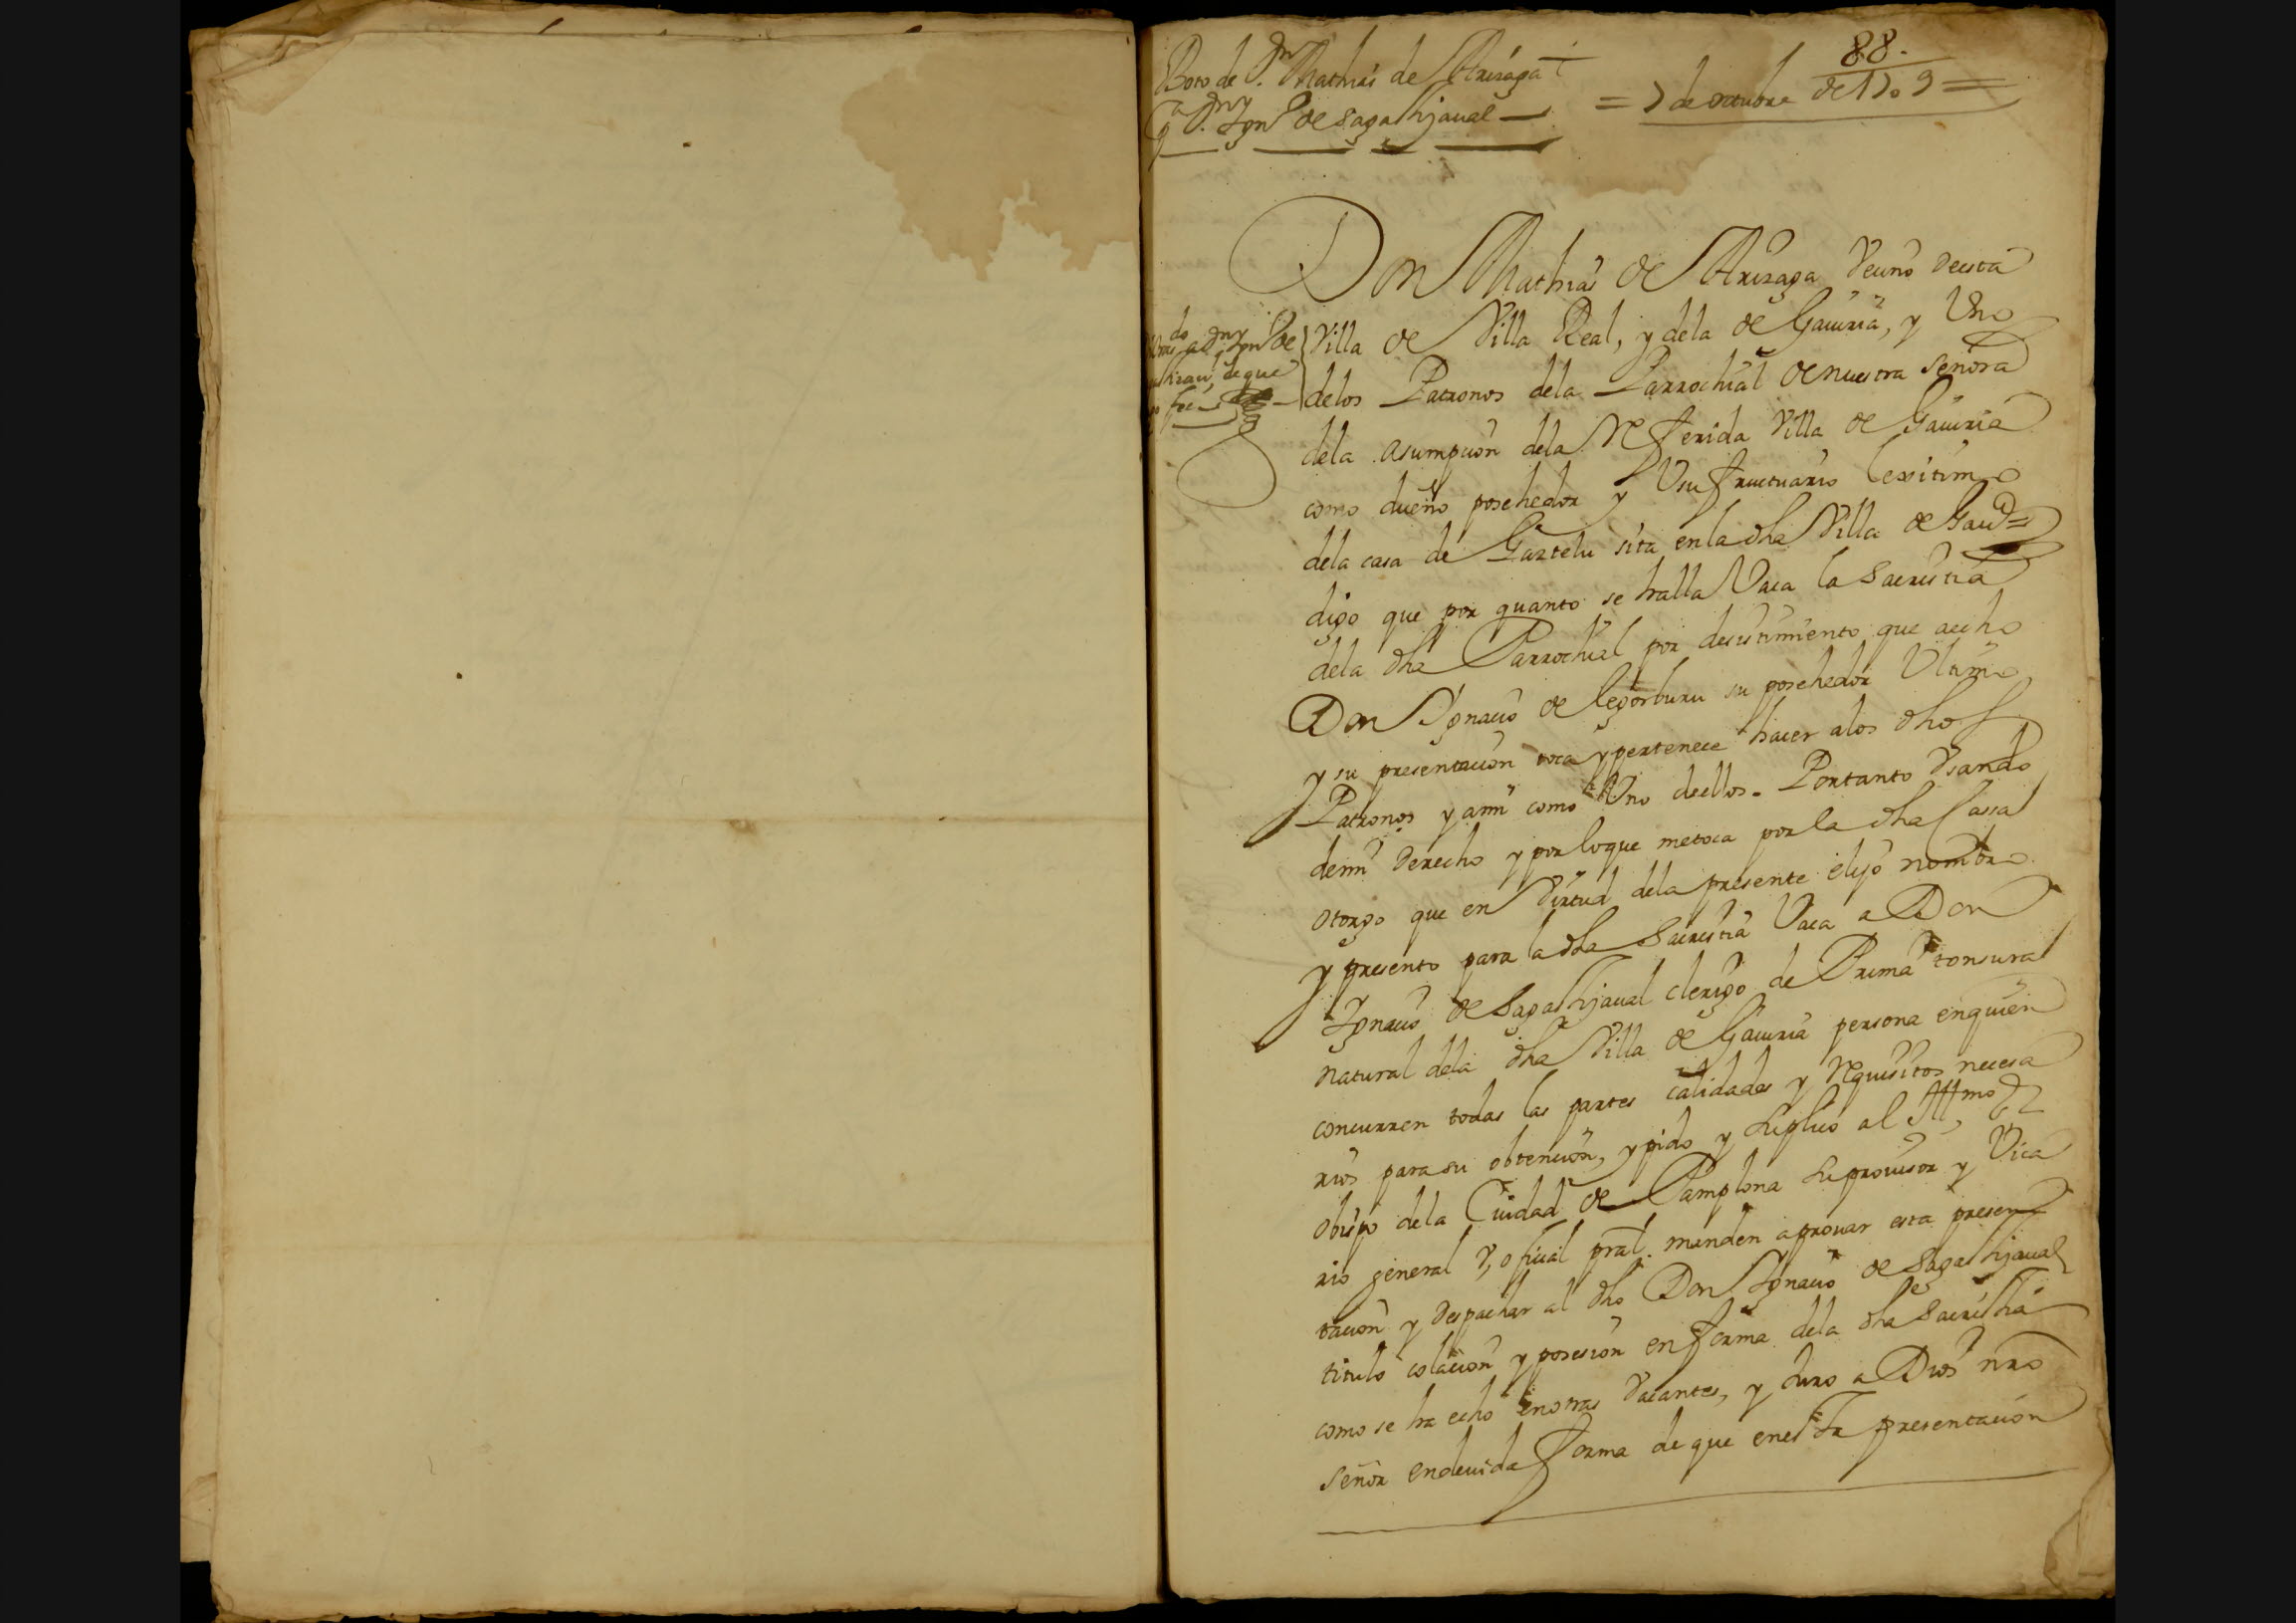 88.
Boto de Dn Mathias de Arizaga
pa Dn Ygno de Sagastijaual
= 7 de octubre de 1709 =
Don Mathias de Arizaga Vecino de esta
Villa de Villa Real, y dela de Gauiria, y Uno
delos Patronos dela Parrochial de nuestra señora
dela Asumpcion dela Referida Villa de Gauiria
como dueño posehedor y Usufructuario lexitimo
dela casa de Gartelu sita enla dha Villa de Gaua
digo que por quanto se halla Vaca la Sacristia
dela dha Parrochial por desistimiento que aecho
Don Ygnacio de Legorburu su posehedor Ultimo
y su presentacion toca y pertenece hacer alos dhos
Patronos y ami como Uno deellos. Portanto Vsando
demi derecho y por loque metoca por la dha Cassa
otorgo que en Virtud dela presente elijo nombro
y presento para la dha Sacristia Vaca a Don
Ygnacio de Sagastijaual clerigo de Prima tonsura
natural dela dha Villa de Gauiria persona enquien
concurren todas las partes calidades y Requisitos necesa
rios para su obtencion, y pido y suplico al Illmo
Obispo dela Ciudad de Pamplona su prouisor y Vica
rio general V, oficial pral. manden aprouar esta presen
tacion y Despachar al dho Don Ygnacio de Sagastijaual
titulo colacion y posesion enforma dela dha Sacristia
como se ha echo enotras Vacantes, y Juro a Dios nro
señor endeuida forma de que enesta presentacion
do a Dn Ygno de
de que
fee